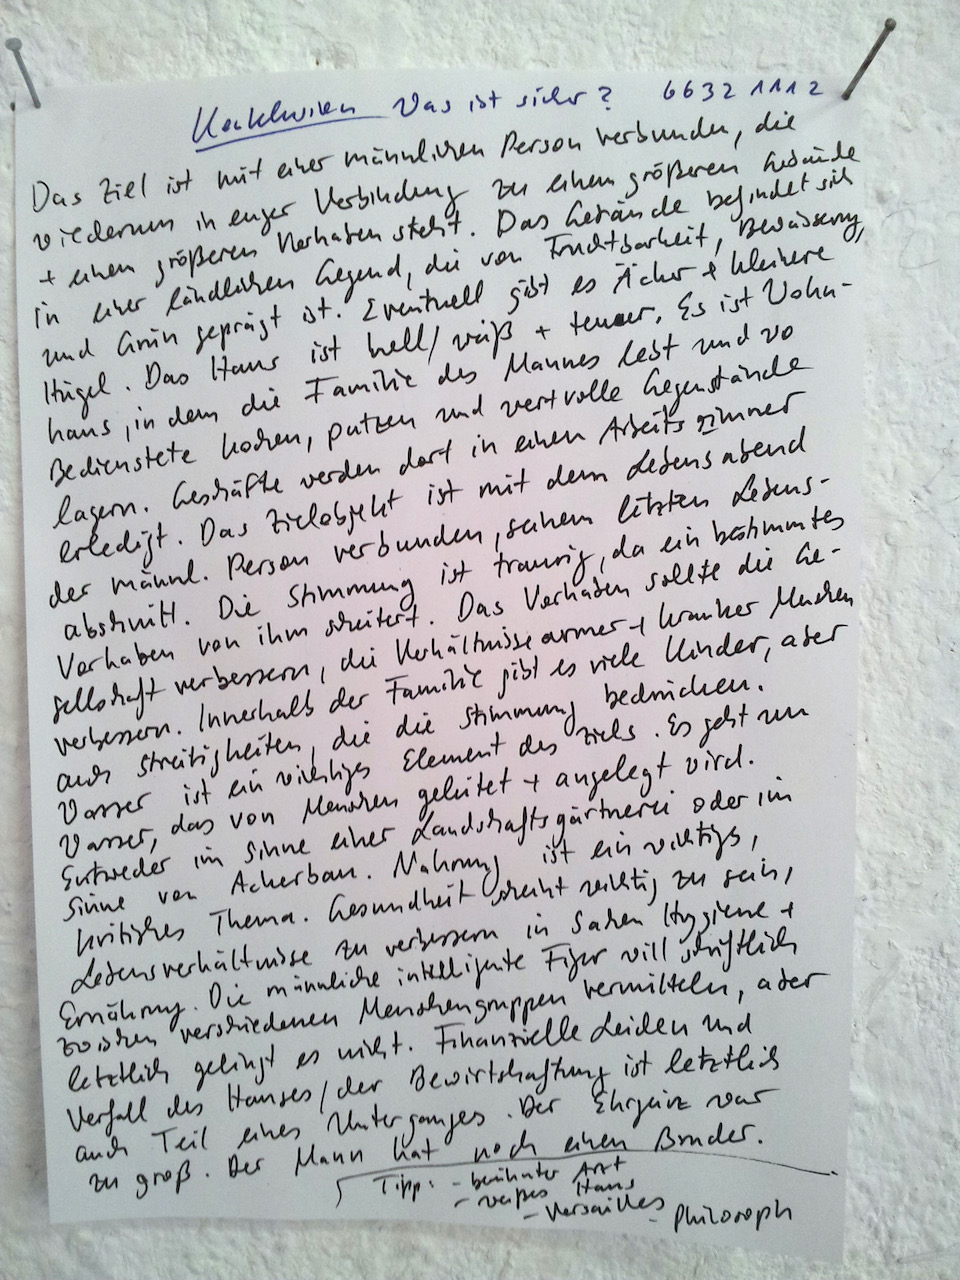 Was ist sicher? 6632 1112
Das Ziel ist mit einer männlichen Person verbunden, die
wiederum in enger Verbindung zu einem größeren Gebäude
+ einem größeren Vorhaben steht. Das Gebäude befindet sich
in einer ländlichen Gegend, die von Fruchtbarkeit, Bewässerung,
und Grün geprägt ist. Eventuell gibt es Äcker + kleinere
Hügel. Das Haus ist hell/weiß + teuer. Es ist Wohn-
haus, in dem die Familie des Mannes lebt und wo
Bedienstete kochen, putzen und wertvolle Gegenstände
lagern. Geschäfte werden dort in einem Arbeitszimmer
erledigt. Das Zielobjekt ist mit dem Lebensabend
der männl. Person verbunden, seinem letzten Lebens-
abschnitt. Die Stimmung ist traurig, da ein bestimmtes
Vorhaben von ihm scheitert. Das Vorhaben sollte die Ge-
sellschaft verbessern, die Verhältnisse armer + kranker Menschen
verbessern. Innerhalb der Familie gibt es viele Kinder, aber
auch Streitigkeiten, die die Stimmung bedrücken.
Wasser ist ein wichtiges Element des Ziels. Es geht um
Wasser, das von Menschen geleitet + angelegt wird.
Entweder im Sinne einer Landschaftsgärtnerei oder im
Sinne von Ackerbau. Nahrung ist ein wichtiges,
kritisches Thema. Gesundheit scheint wichtig zu sein,
Lebensverhältnisse zu verbessern in Sachen Hygiene +
Ernährung. Die männliche intelligente Figur will schriftlich
zwischen verschiedenen Menschengruppen vermitteln, aber
letztlich gelingt es nicht. Finanzielle Leiden und
Verfall des Hauses/der Bewirtschaftung ist letztlich
auch Teil eines Unterganges. Der Ehrgeiz war
zu groß. Der Mann hat noch einen Bruder.
Tipp: - berühmter Arzt
- weißes Haus
- Versailles
- Philosoph